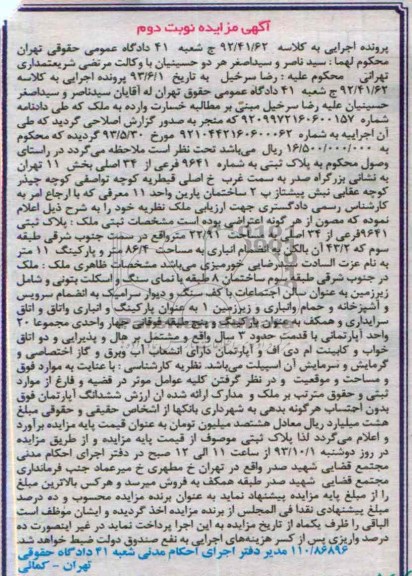 آگهی مزایده نوبت دوم
پرونده اجرایی به کلاسه ۹۲/۴۱/۶۲ ج شعبه ۴۱ دادگاه عمومی حقوقی تهران
محکوم لهما : سید ناصر و سیداصغر هر دو حسینیان با وکالت مرتضی شریعتمداری
تهرانی محکوم علیه : رضا سرخیل به تاریخ ۹۳/۶/۱ پرونده اجرایی به کلاسه
۹۲/۴۱/۶۲ ج شعبه ۴۱ دادگاه عمومی حقوق تهران له آقایان سیدناصر و سیداصغر
حسینیان علیه رضا سرخیل مبنی بر مطالبه خسارت وارده به ملک که طی دادنامه
شماره ۹۲۰۹۹۷۲۱۶۰۶۰۰۱۵۷ که منجر به صدور گزارش اصلاحی گردید که طی
آن اجراییه به شماره ۹۲۱۰۴۴۲۱۶۰۶۰۰۰۶۲ مورخ ۹۳/۵/۳۰ گردیده که محکوم
به ۱۶/۵۰۰/۰۰۰/۰۰۰ ریال میباشد تحت نظر است ملاحظه می‌گردد در راستای
وصول محکوم به پلاک ثبتی به شماره ۹۶۴۱ فرعی از ۳۴ اصلی بخش ۱۱ تهران
به نشانی بزرگراه صدر به سمت غرب خ اصلی قیطریه کوچه تواضعی کوچه چیذر
کوچه عقابی نبش پیشتاز پ ۲ ساختمان پارین واحد ۱۱ معرفی که با ارجاع امر به
کارشناس رسمی دادگستری جهت ارزیابی ملک نظریه خود را به شرح ذیل اعلام
نموده که مصون از هر گونه اعتراضی مانده است مشخصات ثبتی ملک : پلاک ثبتی
۹۶۴۱فرعی از ۳۴ اصلی ... مترواقع در سمت جنوب شرقی طبقه
سوم که ۴۳/۲ آن بالکن است به انضمام انباری به مساحت ۸۶/۴ متر و پارکینگ ۱۱ متر
به نام عزت السادت صدرضایی خورمیزی می‌باشد مشخصات ظاهری ملک : ملک
در جنوب شرقی طبقه سوم ساختمان ۸ طبقه با نمای سنگ و اسکلت بتونی و شامل
زیرزمین به عنوان سالن اجتماعات با کف سنگ و دیوار سرامیک به انضمام سرویس
و آشپزخانه و حمام وانباری و زیرزمین ۱ به عنوان پارکینگ و انباری واتاق و اتاق
سرایداری و همکف به عنوان پارکینگ و پنج طبقه فوقانی چهار واحدی مجموعا ۲۰
واحد آپارتمانی با قدمت حدود ۳ سال واقع و مشتمل بر هال و پذیرایی و دو اتاق
خواب و کابینت ام دی اف و آپارتمان دارای انشعاب آب وبرق و گاز اختصاصی و
گرمایش و سرمایش آن اسپیلت می‌باشد. نظریه کارشناسی : با عنایت به موارد فوق
و مساحت و موقعیت و در نظر گرفتن کلیه عوامل موثر در قضیه و فارغ از موارد
ثبتی و حقوق مترتب بر ملک و مدارک ارائه شده ان ارزش ششدانگ آپارتمان فوق
بدون احتساب هرگونه بدهی به شهرداری بانکها از اشخاص حقیقی و حقوقی مبلغ
هشت میلیارد ریال معادل هشتصد میلیون تومان به عنوان قیمت پایه مزایده برآورد
و اعلام می‌گردد لذا پلاک ثبتی موصوف از قیمت پایه مزایده و از طریق مزایده
در روز دوشنبه ۹۳/۱۰/۱ از ساعت ۱۱ الی ۱۲ صبح در دفتر اجرای احکام مدنی
مجتمع قضایی شهید صدر واقع در تهران خ مطهری خ میرعماد جنب فرمانداری
مجتمع قضایی شهید صدر طبقه همکف به فروش میرسد و هرکس بالاترین مبلغ
را از مبلغ پایه مزایده پیشنهاد نماید به عنوان برنده مزایده محسوب و ده درصد
مبلغ پیشنهادی نقدا فی المجلس از برنده مزایده اخذ گردیده و ایشان موظف است
الباقی را ظرف یکماه از تاریخ مزایده به این اجرا پرداخت نماید در غیر اینصورت ده
درصد واریزی پس از کسر هزینه‌های اجرایی به نفع صندوق دولت ضبط خواهد شد
۱۱۰/۸۶۸۹۶ مدیر دفتر اجرای احکام مدنی شعبه ۴۱ دادگاه حقوقی
تهران - کمائی